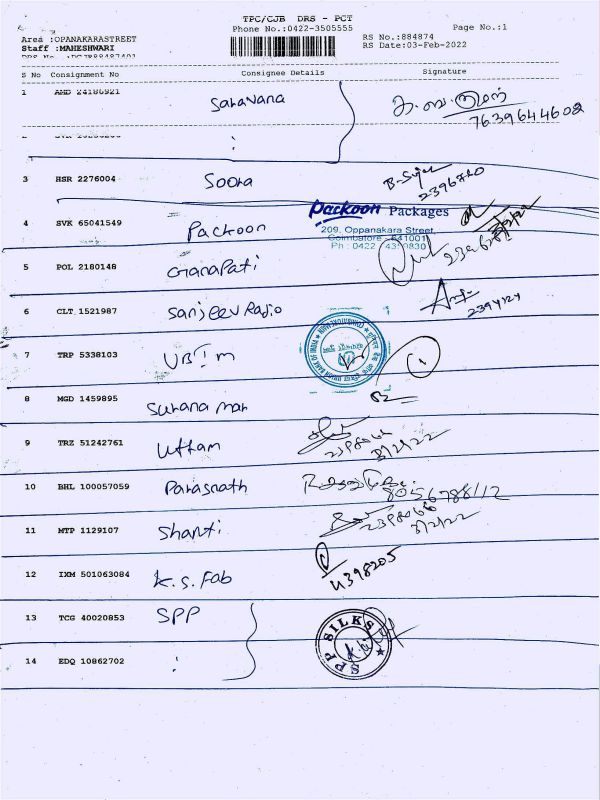 TPC/CJB DRS - PCT
Phone No.:0422-3505555
Page No.:1
Area :OPANAKARASTREET
Staff :MAHESHWARI
RS No.:884874
RS Date:03-Feb-2022
S No Consignment No Consignee Details Signature
1 AMD 24186921 Saravana
7639644602
2
3 HSR 2276004 Soora
2396720
4 SVK 65041549 Packoon
Packoon Packages
209, Oppanakara Street,
Coimbatore - 641001
5 POL 2180148 GanaPati
6 CLT 1521987 Sanjeev Radio
7 TRP 5338103 UBIM
8 MGD 1459895
9 TRZ 51242761 Uttam
2398066
3/2/22
10 BHL 100057059 Parasnath
11 MTP 1129107 Shanti
2398066
3/2/22
12 IXM 501063084 K.S. Fab
4398205
13 TCG 40020853 SPP
SPP SILKS
14 EDQ 10862702